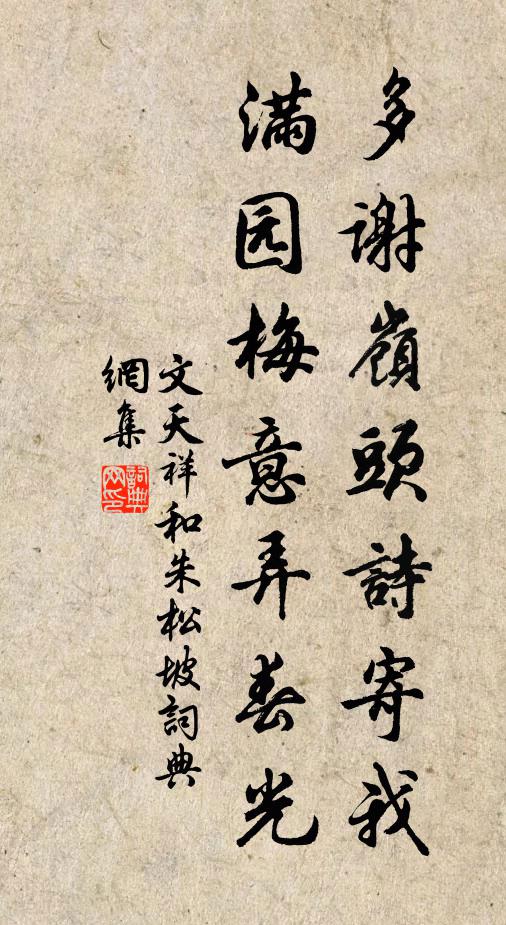 多谢嶺頭詩寄我
满园梅意弄春光
文天祥和朱松坡詞典
網集
詞典網印